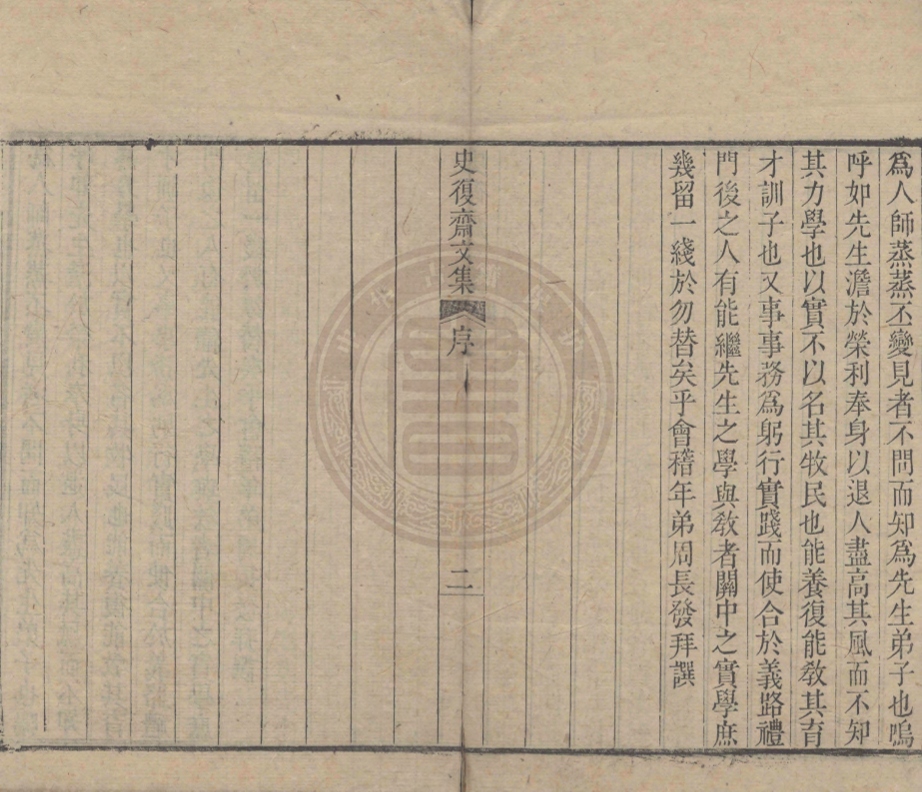 為人師蒸蒸丕變見者不問而知為先生弟子也嗚
呼如先生澹於榮利奉身以退人盡高其風而不知
其力學也以實不以名其牧民也能養復能敎其育
才訓子也又事事務為躬行實踐而使合於義路禮
門後之人有能繼先生之學與敎者關中之實學庶
幾留一綫於勿替矣乎會稽年弟周長發拜譔
史復齋文集 序 二